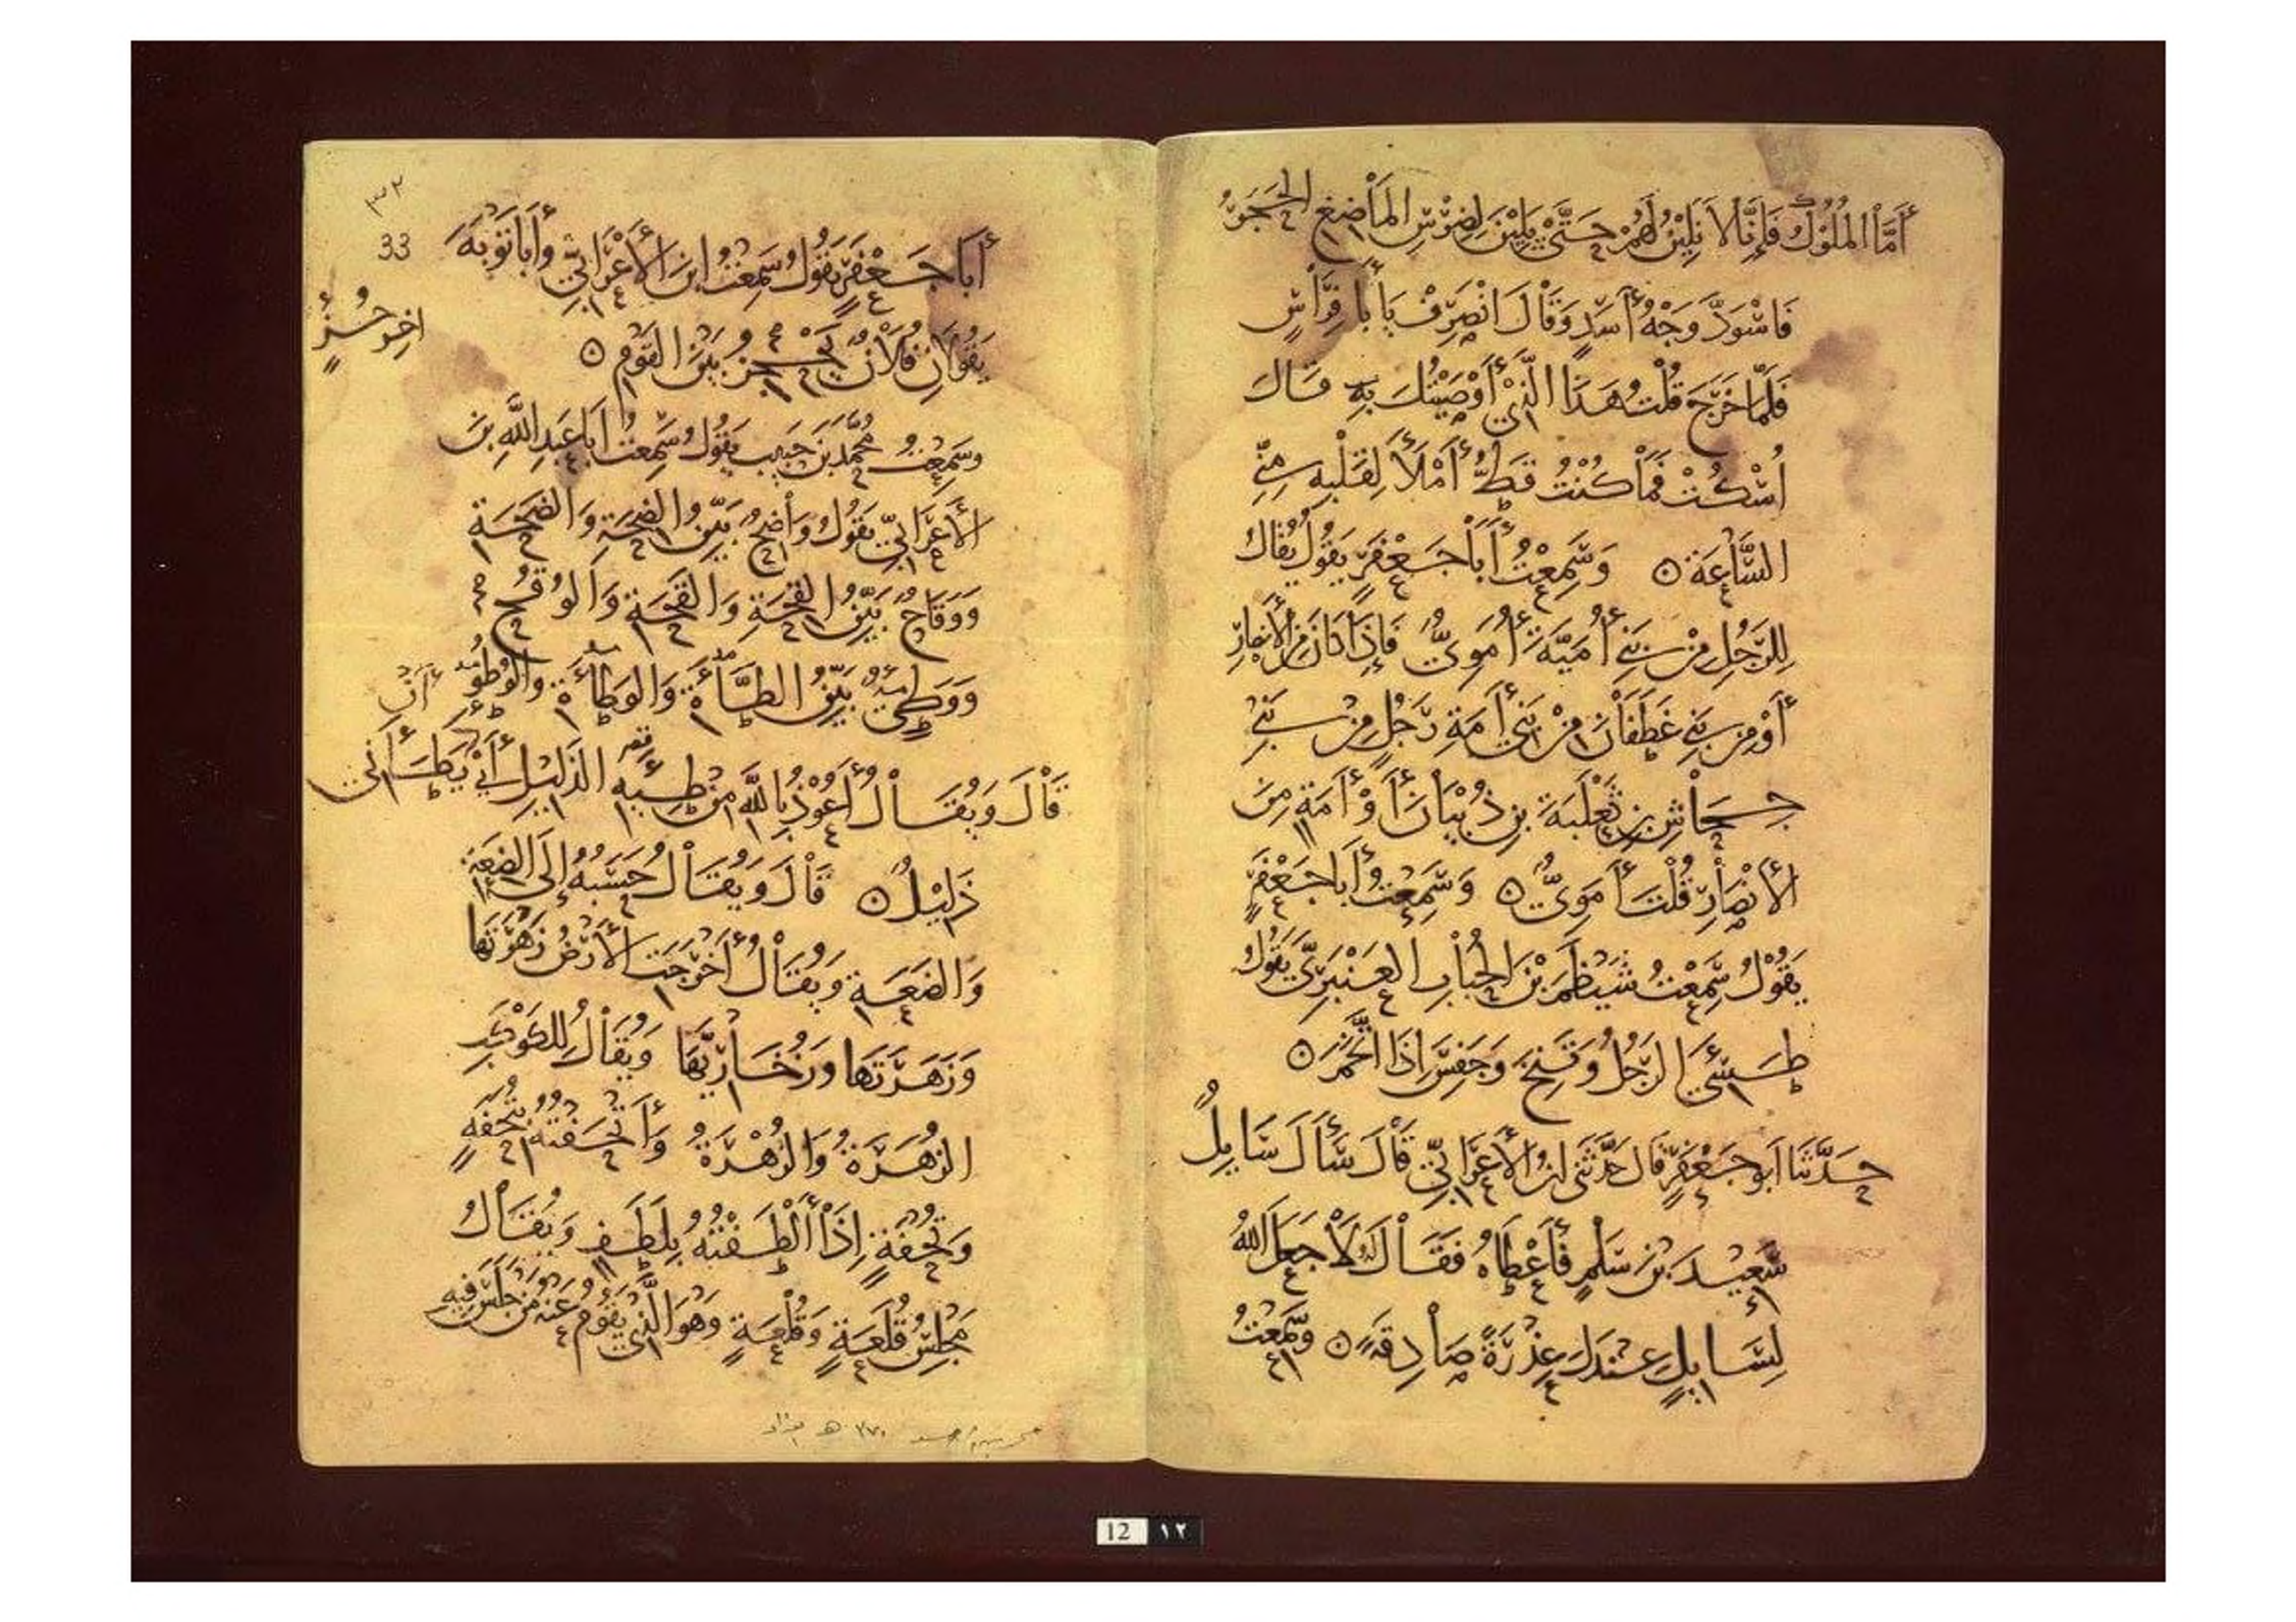 أَمَّا الْمُلُوْكُ فَإِنَّا لَا نَلِيْنُ لَهُمْ حَتَّىٰ يَلِيْنَ لِضِرْسِ الْمَاْضِغِ الْحَجَرُ
فَاسْوَدَّ وَجْهُ أَسَدٍ وَقَاْلَ انْصَرِفْ يَا أَبا فِرَاْسٍ
فَلَمَّا خَرَجَ قُلْتُ هَذَا الَّذِيْ أَوْصَيْتُكَ بِهِ قَالَ
اُسْكُتْ فَمَاْ كُنْتُ قَطُّ أَمْلَأَ لِقَلْبِهِ مِنِّي
السَّاْعَةَ ه وَسَمِعْتُ أَبَاْ جَعْفَرٍ يَقُوْلُ يُقَالُ
لِلرَّجُلِ مِنْ بَنِي أُمَيَّةَ أُمَوِيٌّ فَإِذَا كَانَ مِنَ الْأَنْصَارِ
أَوْ مِنْ بَنِي غَطَفَاْنَ مِنْ بَنِي أَمَةِ رَجُلٍ مِنْ بَنِي
جِحَاْشِ بْنِ ثَعْلَبَةَ بْنِ ذُبْيَاْنَ أَوْ أَمَةٍ مِنَ
الْأَنْصَاْرِ قُلْتَ أَمَوِيٌّ ه وَسَمِعْتُ أَبَا جَعْفَرٍ
يَقُوْلُ سَمِعْتُ شَيْظَمَ بْنَ الْحُبَابِ الْعَنْبَرِيَّ يَقُوْلُ
طَسِئَ الرَّجُلُ وَقَنِخَ وَجَفِسَ إِذَا اتَّخَمَ ه
حَدَّثَنَا أَبُو جَعْفَرٍ قَالَ حَدَّثَنِي ابْنُ الْأَعْرَابِيِّ قَاْلَ سَأَلَ سَائِلٌ
سَعِيْدَ بْنَ سَلْمٍ فَأَعْطَاهُ فَقَاْلَ لَهُ لَاْ جَعَلَ اللّٰهُ
لِسَائِلٍ عِنْدَكَ عِذْرَةً صَاْدِقَةً ه وَسَمِعْتُ
٣٢
33
أَبَا جَعْفَرٍ يَقُوْلُ سَمِعْتُ ابْنَ الْأَعْرَابِيِّ وَأَبَا تَوْبَةَ
يَقُوْلَانِ فُلَاْنٌ يَحْجُزُ بَيْنَ الْقَوْمِ ه
اخر جُزْءٍ
وَسَمِعْتُ مُحَمَّدَ بْنَ حَبِيبَ يَقُوْلُ سَمِعْتُ أَبَا عَبْدِ اللّٰهِ بْنَ
الْأَعْرَابِيِّ يَقُوْلُ وَاْضِحٌ بَيِّنُ الضِّحَةِ وَالضَّحَةِ
وَوَقَاحٌ بَيِّنُ الْقِحَةِ وَالْقَحَةِ وَالْوُقُحِ
وَوَطِيْءٌ بَيِّنُ الطَّأَةِ وَالْوَطَأَةِ وَالْوُطُوءِ
قَاْلَ وَيُقَاْلُ أَعُوْذُ بِاللّٰهِ مِنْ طِئَةِ الذَّلِيْلِ أَيْ أَنْ يَطَأَنِي
ذَلِيْلٌ ه قَاْلَ وَيُقَاْلُ حَسَبُهُ إِلَى الضِّعَةِ
وَالضَّعَةِ وَيُقَاْلُ أَخْرَجَتِ الْأَرْضُ زَهْرَتَهَا
وَزَهَرَتَهَا وَزُخَاْرِيَّهَا وَيُقَاْلُ لِلْكَوْكَبِ
الزُّهَرَةُ وَالزُّهْرَةُ وَأَتْحَفْتُهُ بِتُحْفَةٍ
وَتُحَفَةٍ إِذَاْ أَلْطَفْتَهُ بِلَطَفٍ وَيُقَاْلُ
مَجْلِسُ قُلَعَةٍ وَقُلْعَةٍ وَهُوَ الَّذِيْ يَقُوْمُ عَنْهُ مَنْ جَلَسَ فِيْهِ
12 ١٢